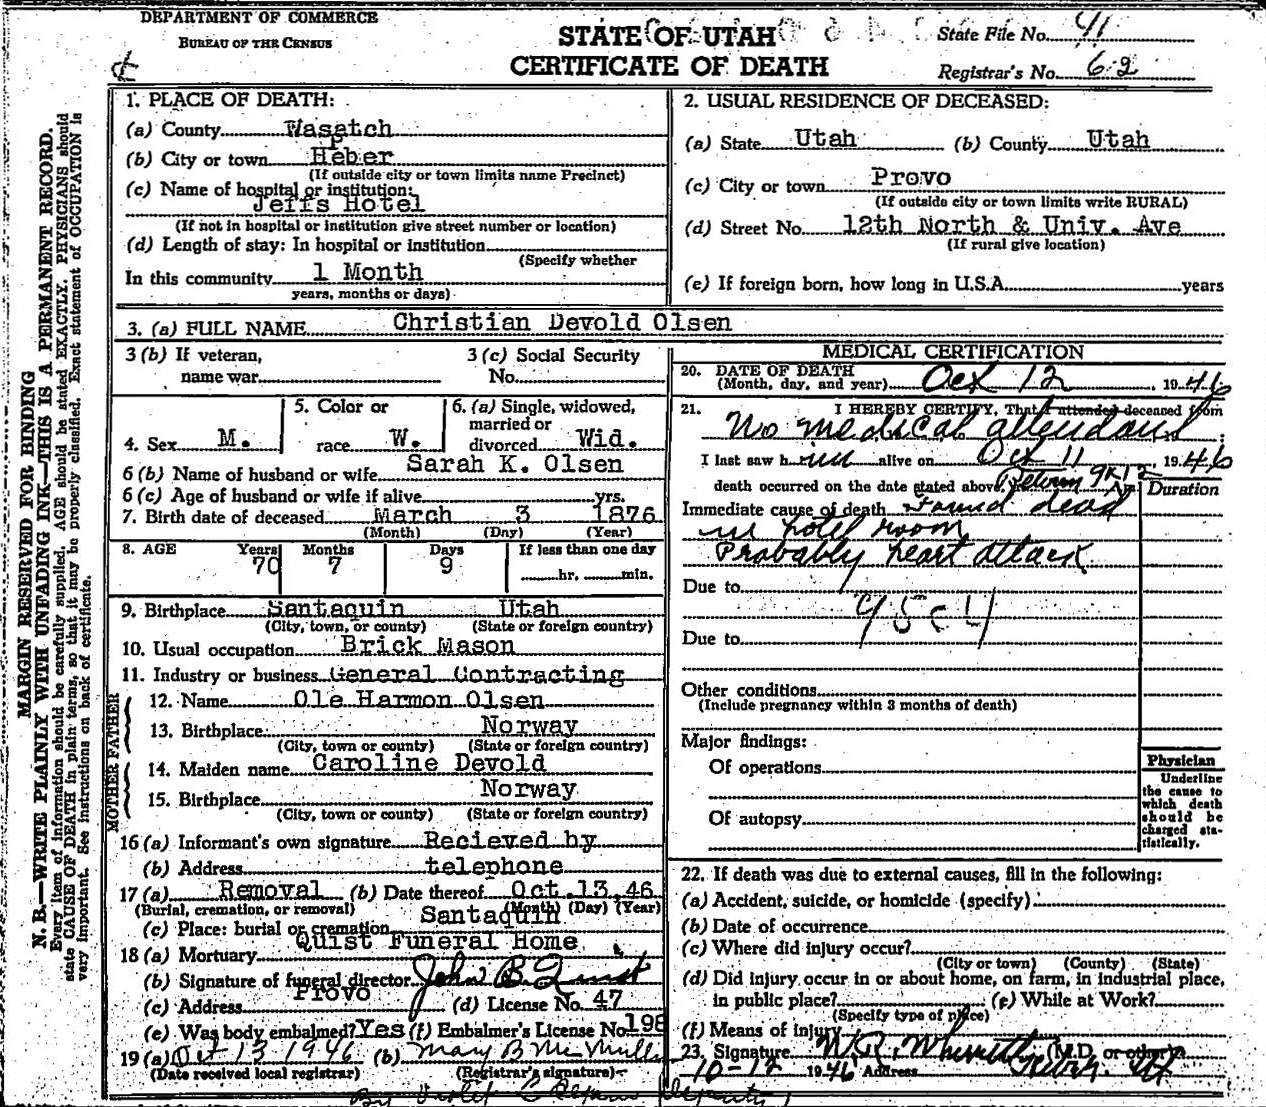 DEPARTMENT OF COMMERCE
BUREAU OF THE CENSUS
STATE OF UTAH
CERTIFICATE OF DEATH
State File No. 41
Registrar's No. 62
MARGIN RESERVED FOR BINDING
N. B.—WRITE PLAINLY WITH UNFADING INK—THIS IS A PERMANENT RECORD.
Every item of information should be carefully supplied. AGE should be stated EXACTLY. PHYSICIANS should
state CAUSE OF DEATH in plain terms, so that it may be properly classified. Exact statement of OCCUPATION is
very important. See instructions on back of certificate.
1. PLACE OF DEATH:
(a) County Wasatch
(b) City or town Heber
(If outside city or town limits name Precinct)
(c) Name of hospital or institution:
Jeffs Hotel
(If not in hospital or institution give street number or location)
(d) Length of stay: In hospital or institution
(Specify whether
In this community 1 Month
years, months or days)
2. USUAL RESIDENCE OF DECEASED:
(a) State Utah (b) County Utah
(c) City or town Provo
(If outside city or town limits write RURAL)
(d) Street No. 12th North & Univ. Ave
(If rural give location)
(e) If foreign born, how long in U.S.A. years
3. (a) FULL NAME Christian Devold Olsen
3 (b) If veteran,
name war
3 (c) Social Security
No.
4. Sex M.
5. Color or
race W.
6. (a) Single, widowed,
married or
divorced Wid.
6 (b) Name of husband or wife Sarah K. Olsen
6 (c) Age of husband or wife if alive yrs.
7. Birth date of deceased March 3 1876
(Month) (Day) (Year)
8. AGE Years Months Days If less than one day
70 7 9 hr. min.
9. Birthplace Santaquin Utah
(City, town, or county) (State or foreign country)
10. Usual occupation Brick Mason
11. Industry or business General Contracting
FATHER
12. Name Ole Harmon Olsen
13. Birthplace Norway
(City, town or county) (State or foreign country)
MOTHER
14. Maiden name Caroline Devold
15. Birthplace Norway
(City, town or county) (State or foreign country)
16 (a) Informant's own signature Recieved by
(b) Address telephone
17 (a) Removal (b) Date thereof Oct.13,46
(Burial, cremation, or removal) (Month) (Day) (Year)
(c) Place: burial or cremation Santaquin
18 (a) Mortuary Quist Funeral Home
(b) Signature of funeral director John B. Quist
(c) Address Provo (d) License No. 47
(e) Was body embalmed? Yes (f) Embalmer's License No. 198
19 (a) Oct 13 1946 (b) Mary B McMullin
(Date received local registrar) (Registrar's signature)
By Violet Deputy
MEDICAL CERTIFICATION
20. DATE OF DEATH
(Month, day, and year) Oct 12, 1946
21. I HEREBY CERTIFY, That I attended deceased from
No medical attendant
I last saw him alive on Oct 11 1946
death occurred on the date stated above, Between 9 & 12 m.
Duration
Immediate cause of death Found dead
in hotel room
Probably heart attack
Due to
Due to
Other conditions
(Include pregnancy within 3 months of death)
Major findings:
Of operations
Of autopsy
Physician
Underline
the cause to
which death
should be
charged sta-
tistically.
22. If death was due to external causes, fill in the following:
(a) Accident, suicide, or homicide (specify)
(b) Date of occurrence
(c) Where did injury occur?
(City or town) (County) (State)
(d) Did injury occur in or about home, on farm, in industrial place,
in public place? (e) While at Work?
(Specify type of place)
(f) Means of injury
23. Signature W.R. Wherritt (M.D. or other)
10-12 1946 Address Heber Ut